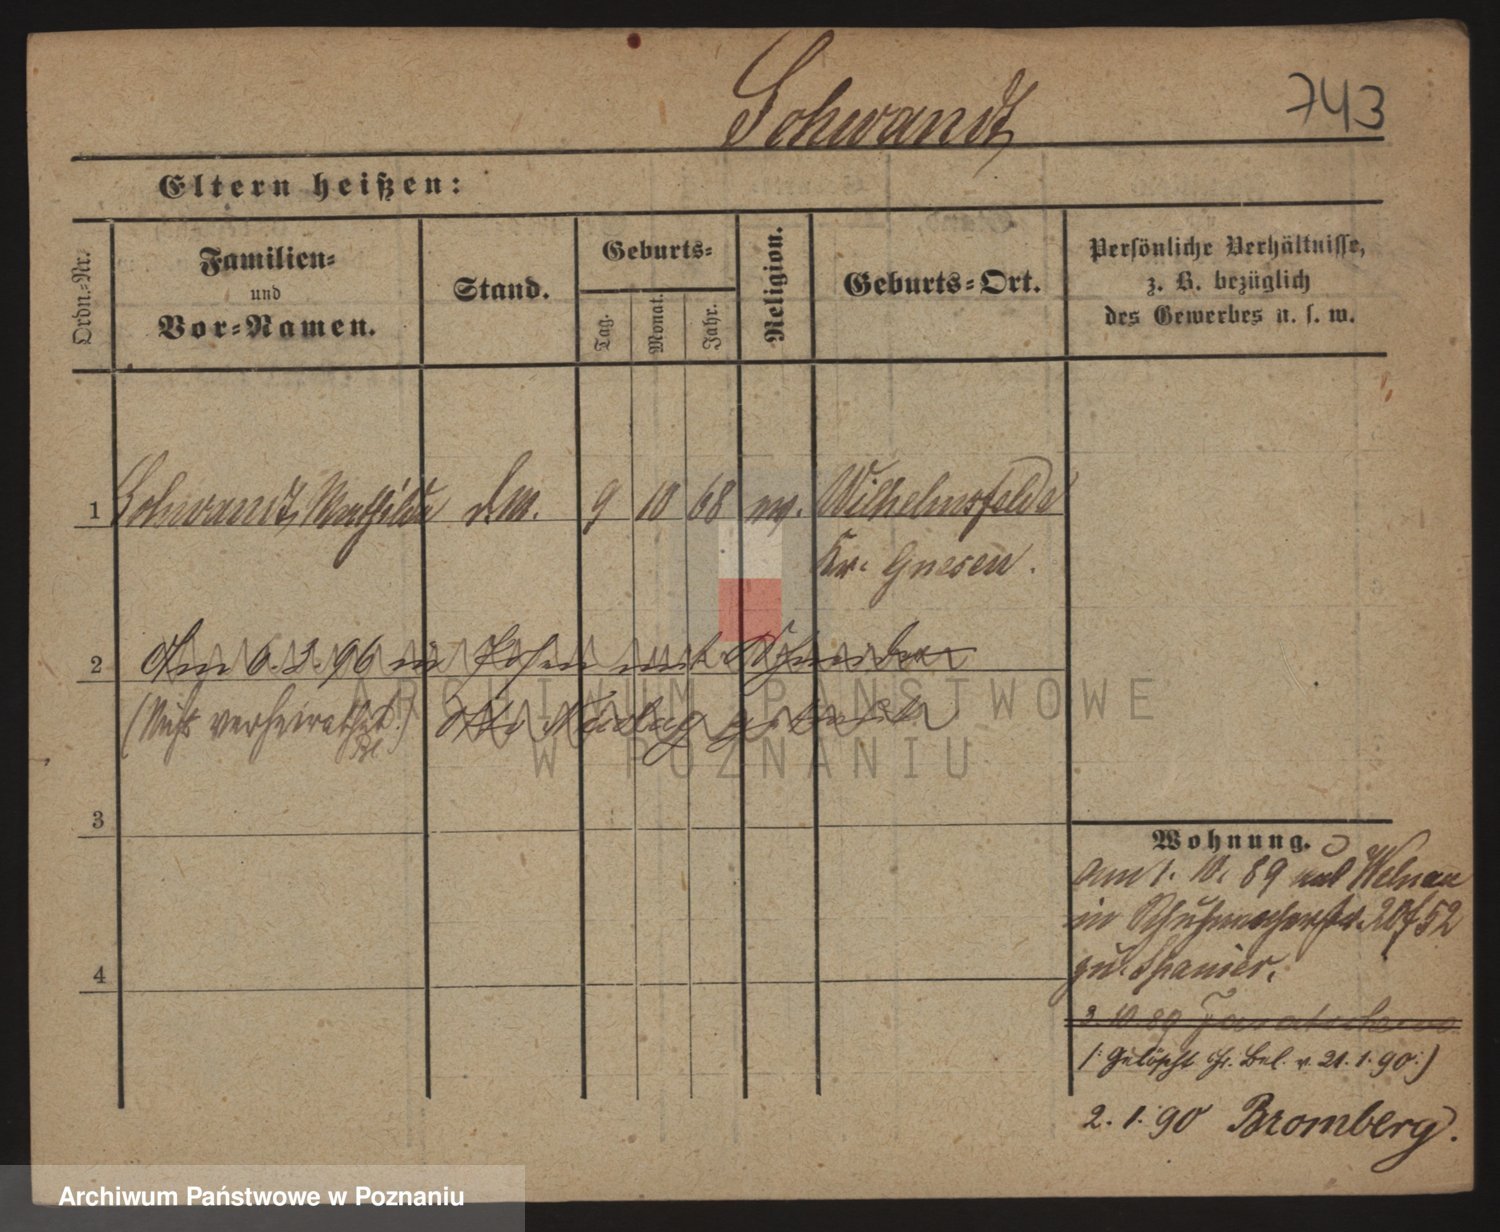 Schwandt
743
Eltern heißen:
Ordn.-Nr.
Familien=
und
Vor=Namen.
Stand.
Geburts=
Tag.
Monat.
Jahr.
Religion.
Geburts=Ort.
Persönliche Verhältnisse,
z. B. bezüglich
des Gewerbes u. s. w.
1 Schwandt, Mathilde d. M. 9 10 68 ev. Wilhelmsfelde
Kr. Gnesen.
2 Am 6. 3. 96 in Posen mit Schneider
(Nicht verheirathet.) Otto
ARCHIWUM PAŃSTWOWE
W POZNANIU
3
4
Wohnung.
am 1. 10. 89 aus Welnau
in Schuhmacherstr. 20 f 52
zu Spanier.
3. 10 89
(: Gelöscht Bel. v. 21. 1. 90 :)
2. 1. 90 Bromberg.
Archiwum Państwowe w Poznaniu